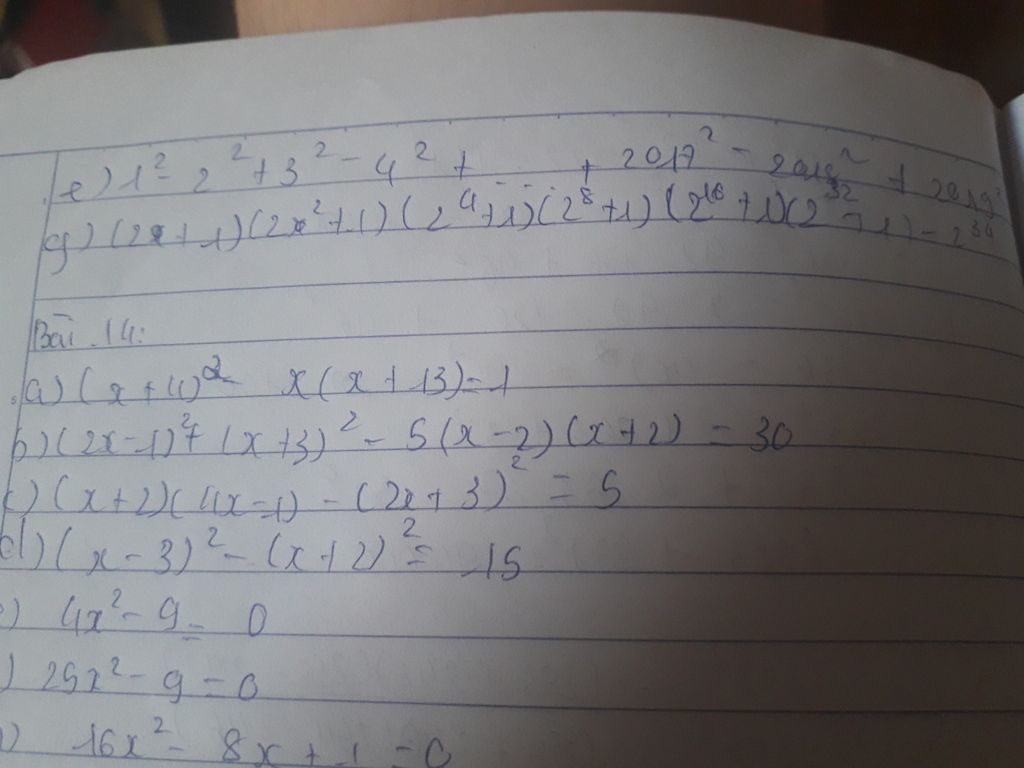 e) 1² - 2² + 3² - 4² + ..... + 2017² - 2018² + 2019²
g) (2+1)(2²+1)(2⁴+1)(2⁸+1)(2¹⁶+1)(2³²+1) - 2⁶⁴
Bài 14:
a) (x+4)² x(x+13)=1
b) (2x-1)² + (x+3)² - 5(x-2)(x+2) = 30
c) (x+2)(4x-1) - (2x+3)² = 5
d) (x-3)² - (x+2)² = 15
) 4x² - 9 = 0
) 25x² - 9 = 0
) 16x² - 8x + 1 = 0